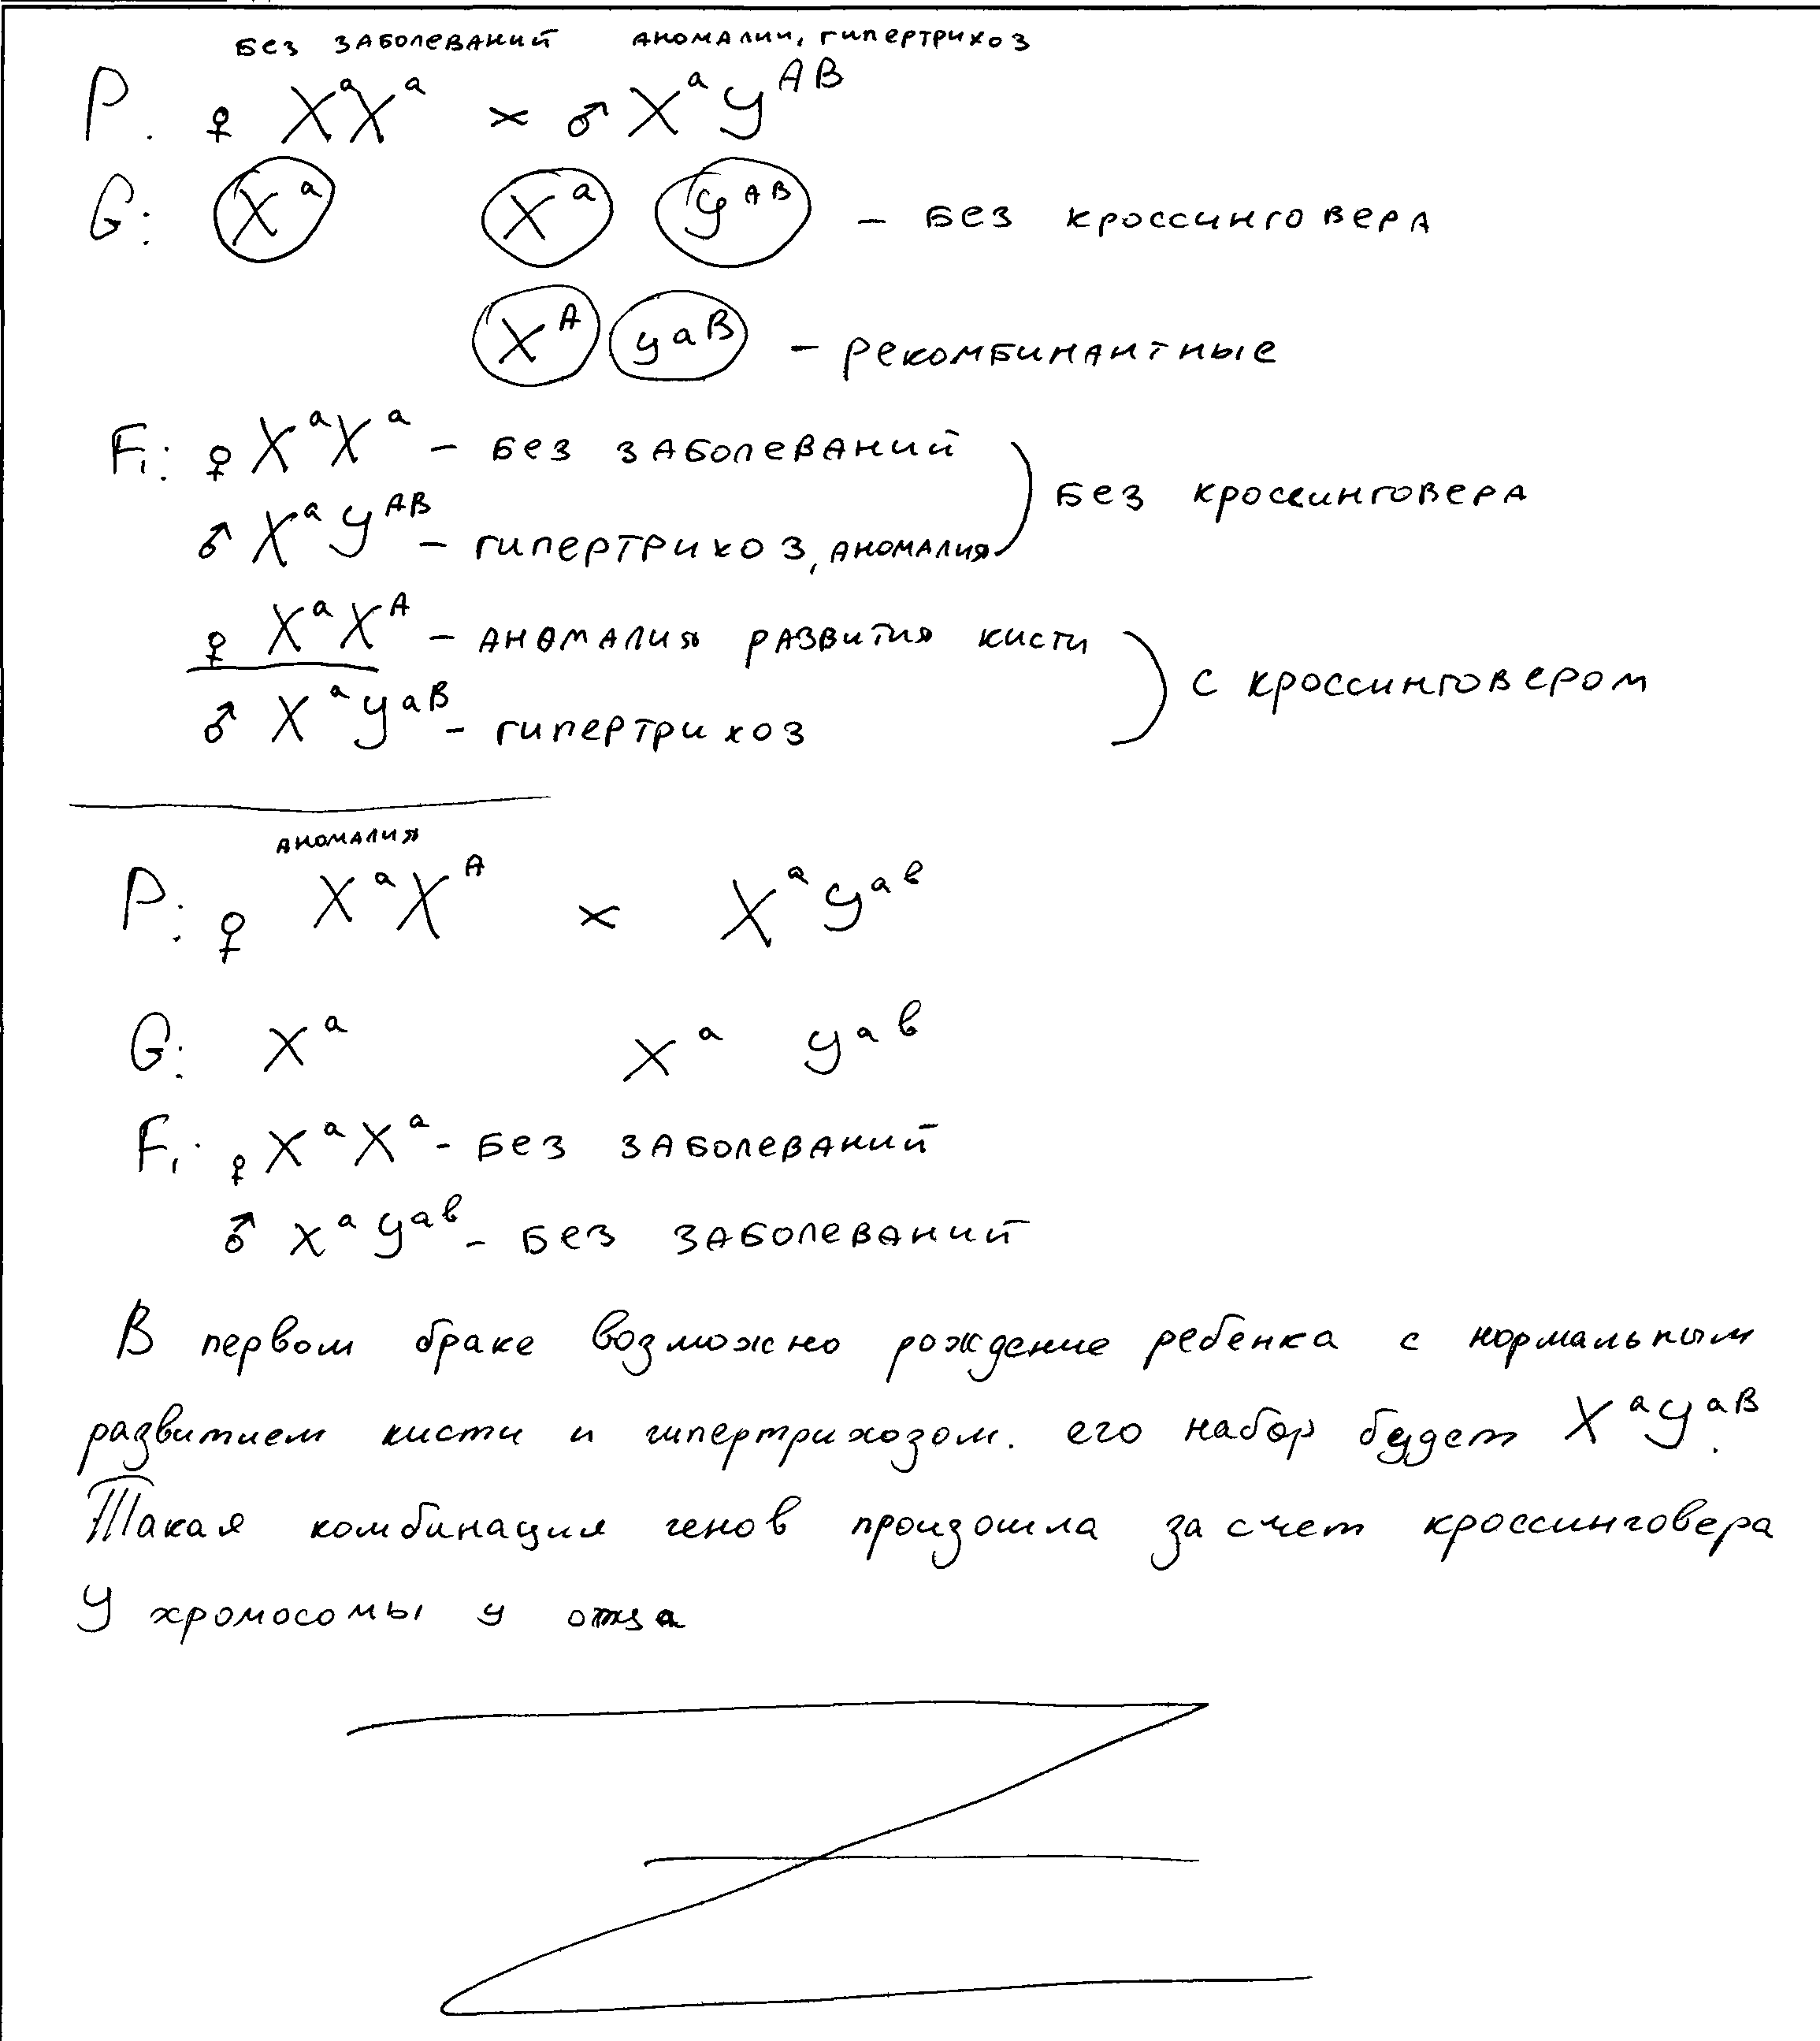 без заболеваний аномалии, гипертрихоз
P. ♀ XᵃXᵃ × ♂ XᵃYᴬᴮ
G: Xᵃ Xᵃ Yᴬᴮ – без кроссинговера
Xᴬ Yᵃᴮ – рекомбинантные
F₁: ♀ XᵃXᵃ – без заболеваний
без кроссинговера
♂ XᵃYᴬᴮ – гипертрихоз, аномалия
♀ XᵃXᴬ – аномалия развития кисти
с кроссинговером
♂ XᵃYᵃᴮ – гипертрихоз
аномалия
P: ♀ XᵃXᴬ × XᵃYᵃᵇ
G: Xᵃ Xᵃ Yᵃᵇ
F₁. ♀ XᵃXᵃ - без заболеваний
♂ XᵃYᵃᵇ - без заболеваний
В первом браке возможно рождение ребенка с нормальным
развитием кисти и гипертрихозом. его набор будет XᵃYᵃᴮ.
Такая комбинация генов произошла за счет кроссинговера
У хромосомы у отца